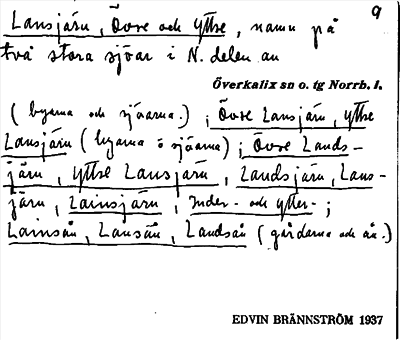 9
Lansjärn, Övre och Yttre, namn på
två stora sjöar i N. delen av
Överkalix sn o. tg Norrb. l.
(byarna och sjöarna.); Övre Lansjärn, Yttre
Lansjärn (byarna o sjöarna); Övre Lands-
järn, Yttre Lansjärn, Landsjärn, Lans-
järn, Lainsjärn, Inder- och Ytter-;
Lainsån, Lansån, Landsån (gårdarna och ån.)
EDVIN BRÄNNSTRÖM 1937